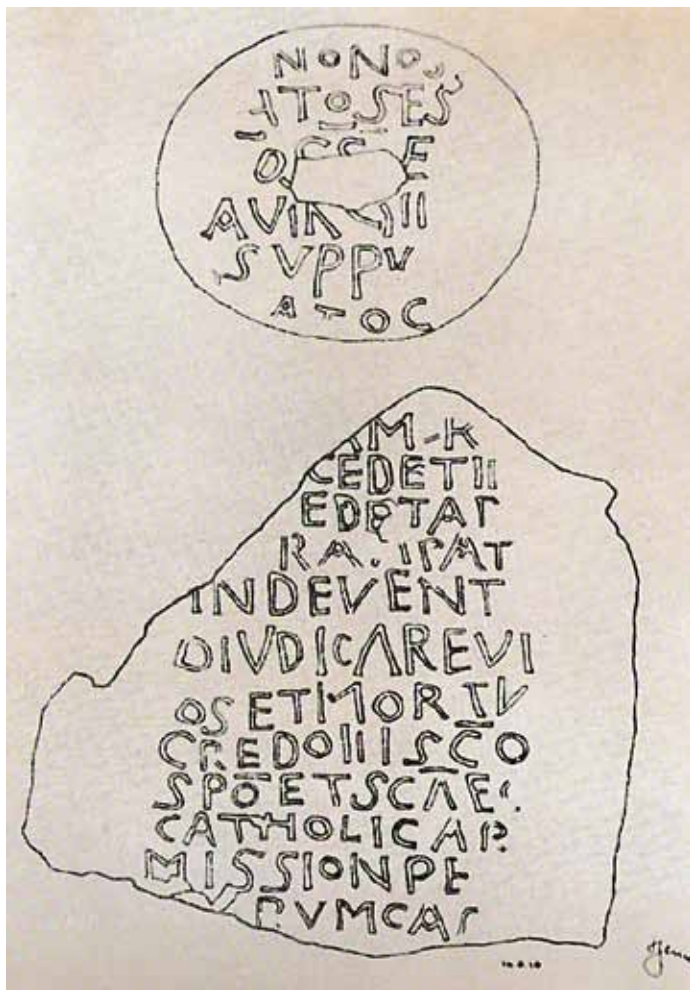 NONO
ATOSES
AVIR
SVPPV
ATOC
AM-R
CEDETII
EDETAP
RA. IPAT
INDEVENT
DIVDICAREVI
OSETMORTV
CREDOIIISCO
SPOETSCAE
CATHOLICAP
MISSIONPE
RVMCAR